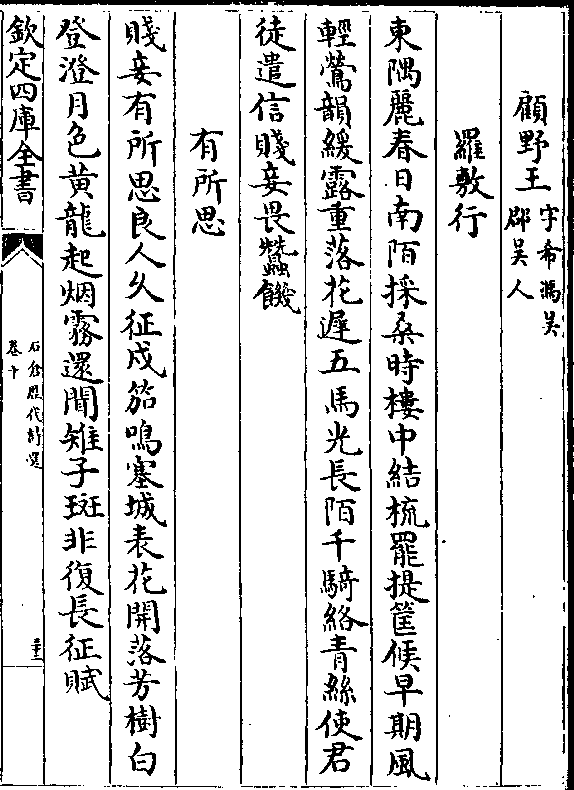 顧野王字希馮吳
郡吳人
羅敷行
東隅麗春日南陌採桑時樓中結梳罷提筐候早期風
輕鶯韻緩露重落花遲五馬光長陌千騎絡青絲使君
徒遣信賤妾畏蠶饑
有所思
賤妾有所思良人久征戍笳鳴塞城表花開落芳樹白
登澄月色黄龍起烟霧還聞雉子斑非復長征賦
欽定四庫全書
石倉歴代詩選
卷十